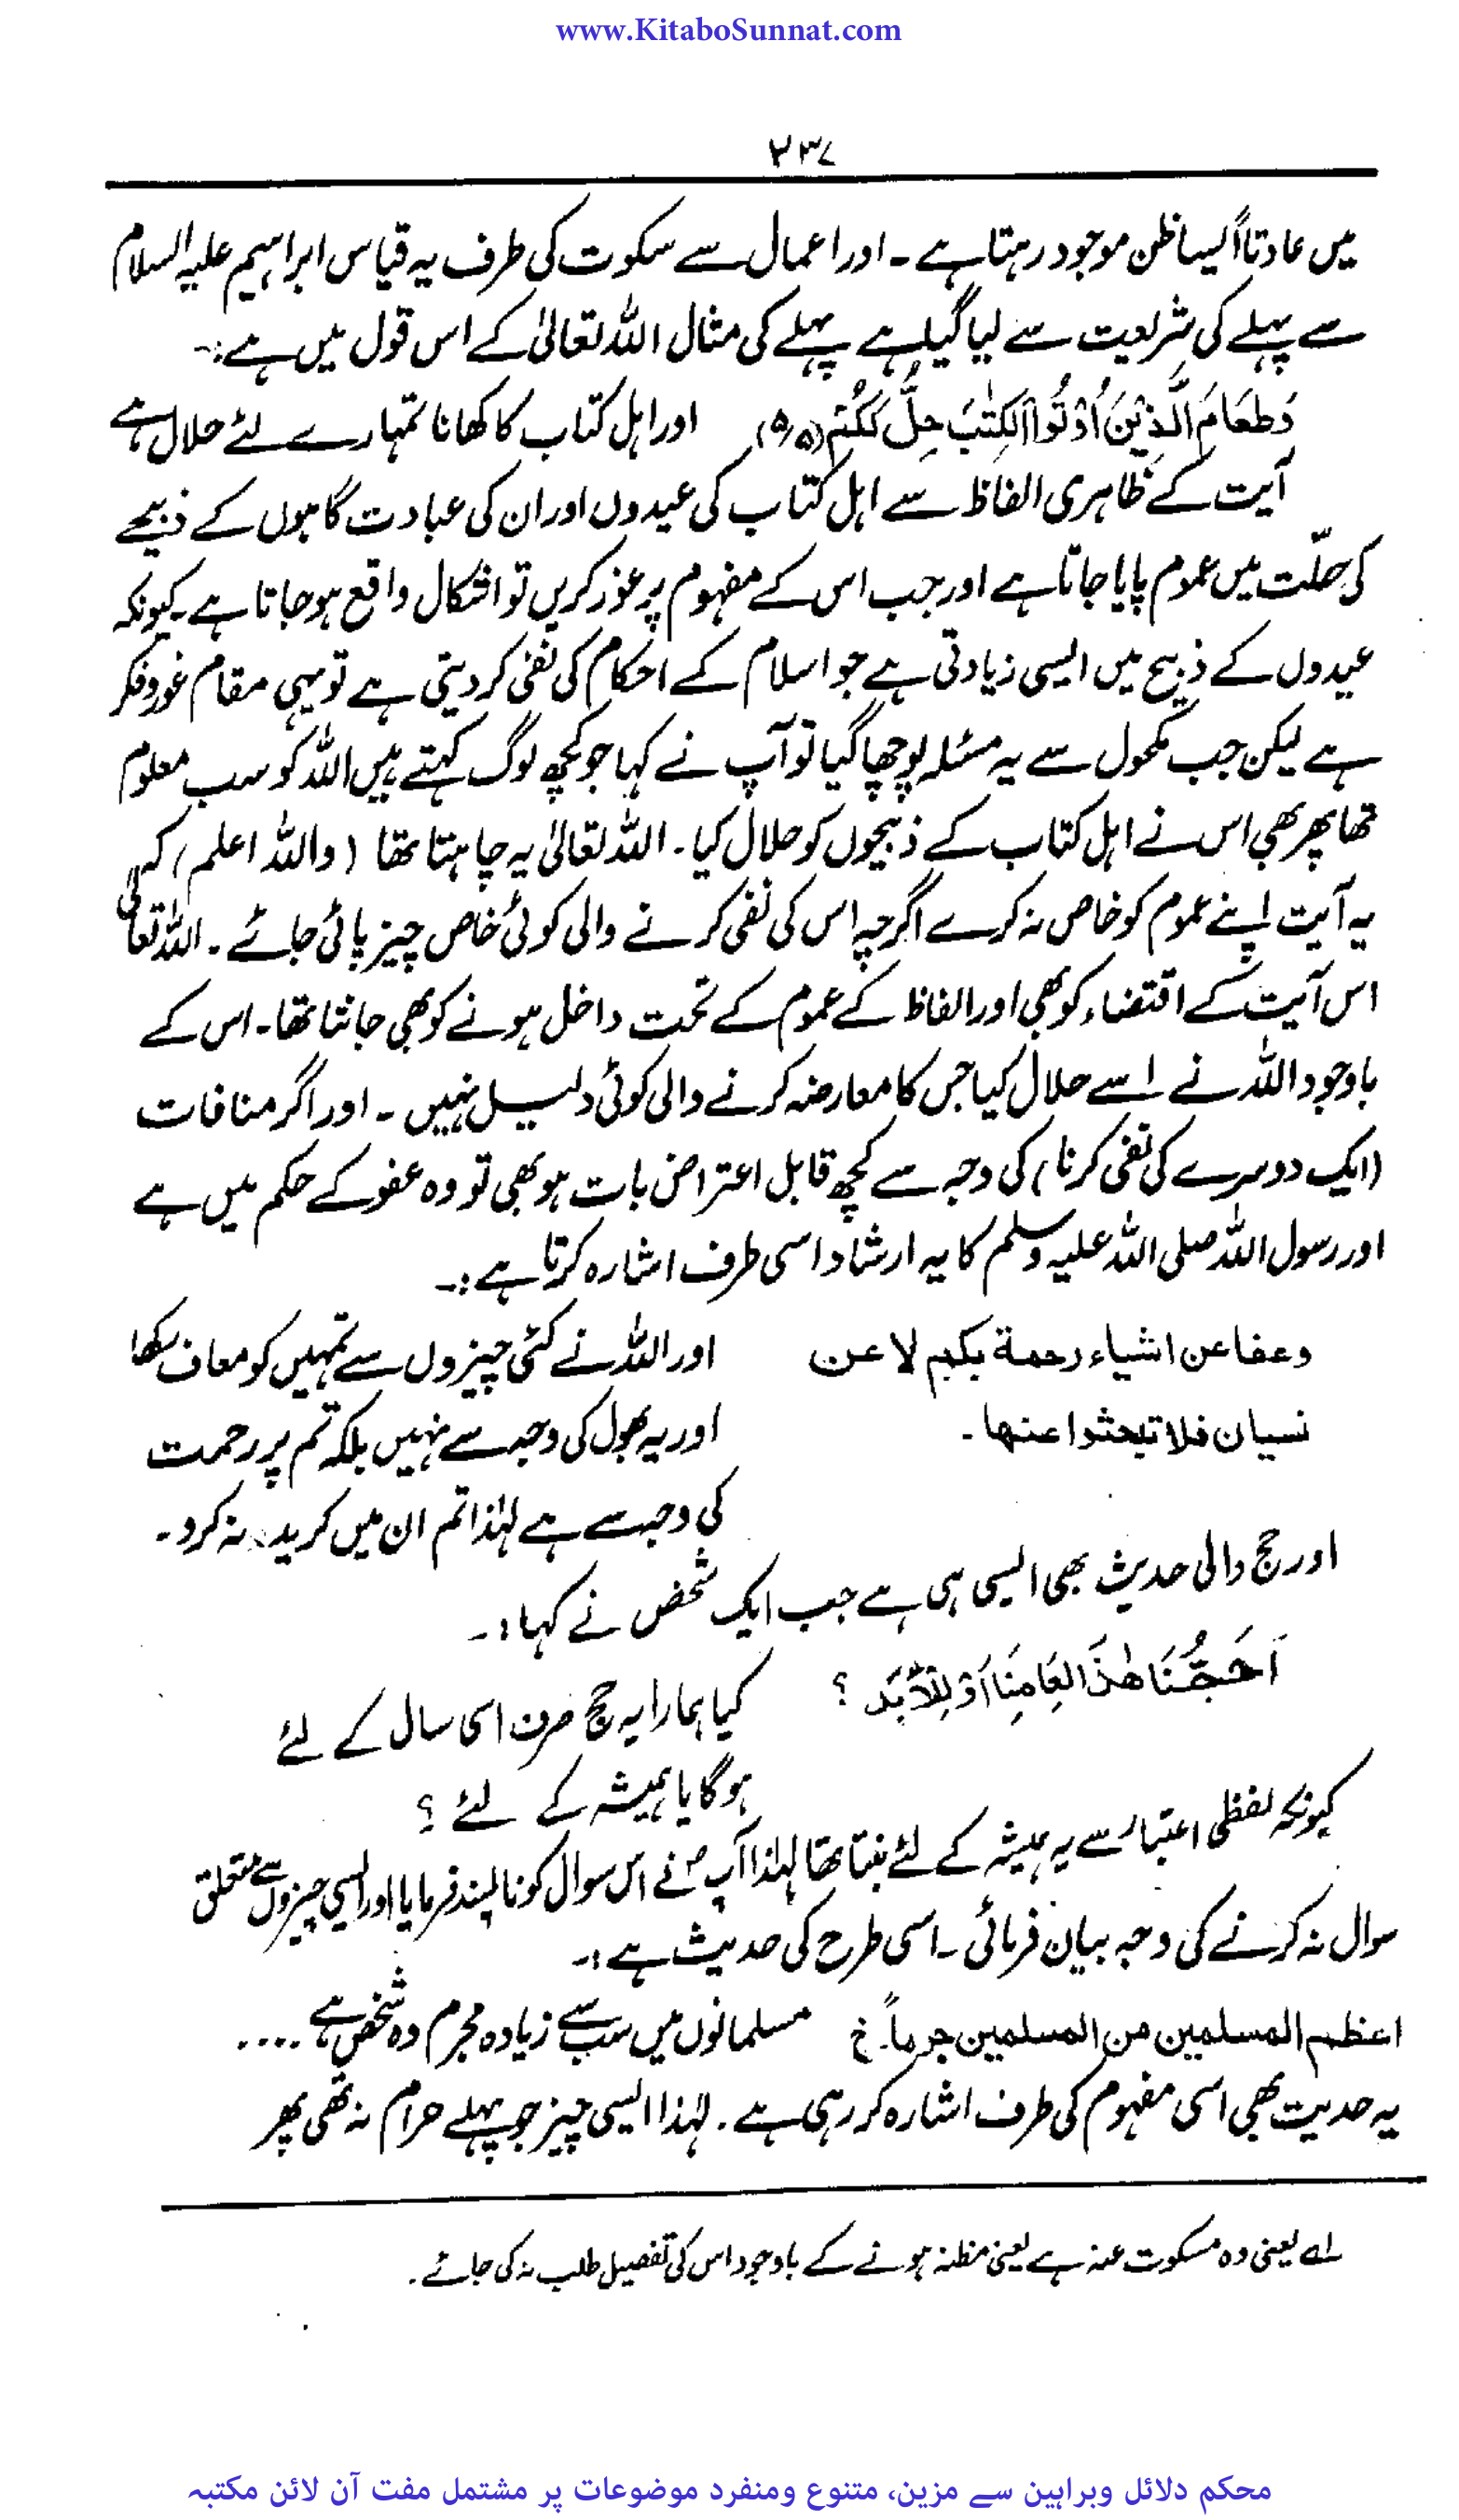 www.KitaboSunnat.com
۲۳۷
میں عادتاً ایسا ظن موجود رہتا ہے ۔ اور اعمال سے سکوت کی طرف یہ قیاس ابراہیم علیہ السلام
سے پہلے کی شریعت سے لیا گیا ہے پہلے کی مثال اللہ تعالیٰ کے اس قول میں ہے :۔
وَطَعَامَ الَّذِیْنَ اُوْتُوا الْکِتٰبَ حِلٌّ لَکُمْ (۵/۵) اور اہل کتاب کا کھانا تمہارے لئے حلال ہے
آیت کے ظاہری الفاظ سے اہل کتاب کی عیدوں اور ان کی عبادت گاہوں کے ذبیحے
کی حلّت میں عموم پایا جاتا ہے اور جب اس کے مفہوم پر غور کریں تو اشکال واقع ہو جاتا ہے ۔ کیونکہ
عیدوں کے ذبیح میں ایسی زیادتی ہے جو اسلام کے احکام کی نفی کر دیتی ہے تو یہی مقام غور و فکر
ہے لیکن جب مکحول سے یہ مسئلہ پوچھا گیا تو آپ نے کہا جو کچھ لوگ کہتے ہیں اللہ کو سب معلوم
تھا پھر بھی اس نے اہل کتاب کے ذبیحوں کو حلال کیا ۔ اللہ تعالیٰ یہ چاہتا تھا (واللہ اعلم) کہ
یہ آیت اپنے عموم کو خاص نہ کرے اگرچہ اس کی نفی کرنے والی کوئی خاص چیز پائی جائے ۔ اللہ تعالیٰ
اس آیت کے اقتضاء کو بھی اور الفاظ کے عموم کے تحت داخل ہونے کو بھی جانتا تھا ۔ اس کے
باوجود اللہ نے اسے حلال کیا جس کا معارضہ کرنے والی کوئی دلیل نہیں ۔ اور اگر منافات
(ایک دوسرے کی نفی کرنا) کی وجہ سے کچھ قابل اعتراض بات ہو بھی تو وہ عفو کے حکم میں ہے
اور رسول اللہ صلی اللہ علیہ وسلم کا یہ ارشاد اسی طرف اشارہ کرتا ہے :۔
وعفا عن اشیاء رحمة بکم لا عن اور اللہ نے کئی چیزوں سے تمہیں کو معاف رکھا
نسیان فلا تبحثوا عنها ۔ اور یہ بھول کی وجہ سے نہیں بلکہ تم پر رحمت
کی وجہ سے ہے لہٰذا تم ان میں کرید نہ کرو ۔
اور حج والی حدیث بھی ایسی ہی ہے جب ایک شخص نے کہا :۔
اَحَجُّنَا هٰذَا لِعَامِنَا اَوْ لِلْاَبَدِ ؟ کیا ہمارا یہ حج صرف اسی سال کے لئے
ہوگا یا ہمیشہ کے لئے ؟
کیونکہ لفظی اعتبار سے یہ ہمیشہ کے لئے بنتا تھا لہٰذا آپؐ نے اس سوال کو ناپسند فرمایا اور ایسی چیزوں سے متعلق
سوال نہ کرنے کی وجہ بیان فرمائی ۔ اسی طرح کی حدیث ہے :۔
اعظم المسلمین من المسلمین جرماً ۔ خ مسلمانوں میں سب سے زیادہ مجرم وہ شخص ہے ....
یہ حدیث بھی اسی مفہوم کی طرف اشارہ کر رہی ہے ۔ لہٰذا ایسی چیز جو پہلے حرام نہ تھی پھر
لے یعنی وہ مسکوت عنہ ہے یعنی مظنہ ہونے کے باوجود اس کی تفصیل طلب نہ کی جائے ۔
محکم دلائل وبراہین سے مزین، متنوع ومنفرد موضوعات پر مشتمل مفت آن لائن مکتبہ